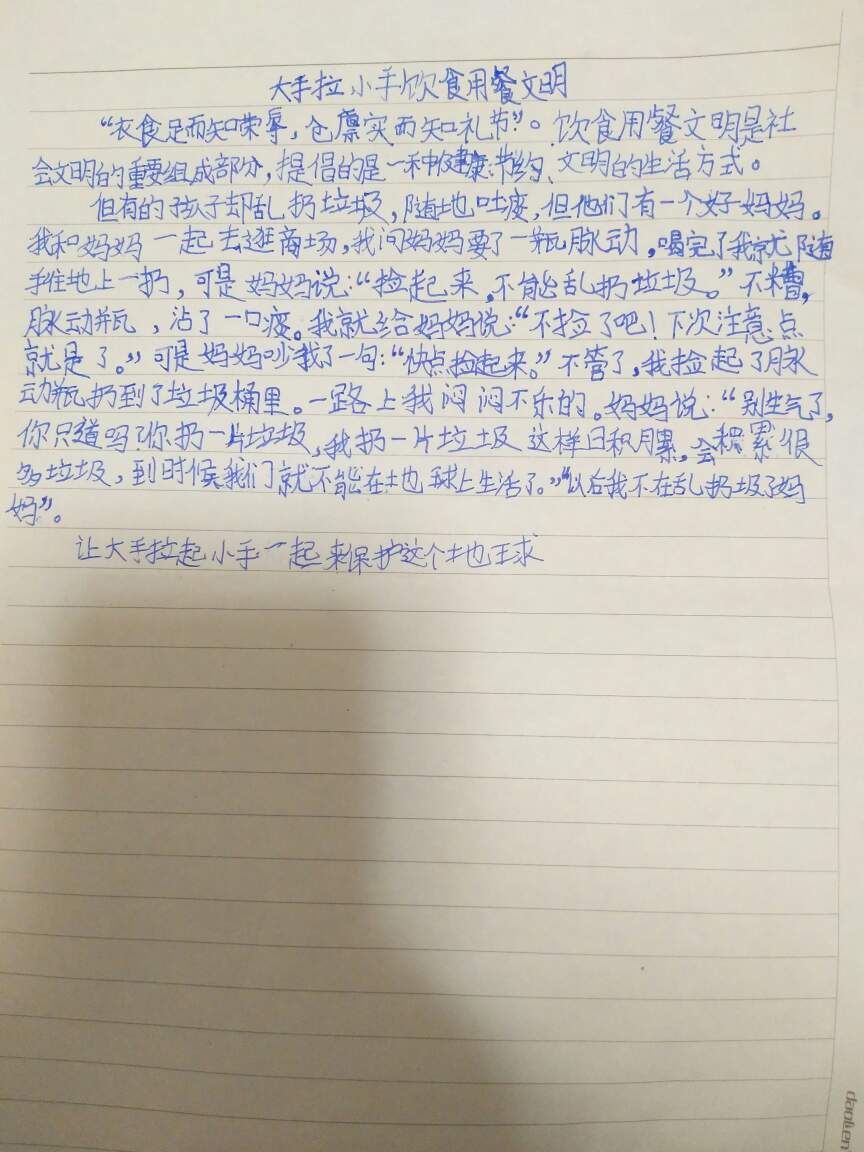 大手拉小手饮食用餐文明
“衣食足而知荣辱，仓廪实而知礼节”。饮食用餐文明是社
会文明的重要组成部分，提倡的是一种健康、节约、文明的生活方式。
但有的孩子却乱扔垃圾，随地吐痰，但他们有一个好妈妈。
我和妈妈一起去逛商场，我问妈妈要了一瓶脉动，喝完了我就随
手往地上一扔，可是妈妈说：“捡起来，不能乱扔垃圾。”不糟，
脉动瓶，沾了一口痰。我就给妈妈说：“不捡了吧！下次注意点
就是了。”可是妈妈吵我了一句：“快点捡起来。”不管了，我捡起了脉
动瓶扔到了垃圾桶里。一路上我闷闷不乐的。妈妈说：“别生气了，
你只道吗？你扔一片垃圾，我扔一片垃圾这样日积月累，会积累很
多垃圾，到时候我们就不能在地球上生活了。”“以后我不在乱扔圾了妈
妈”。
让大手拉起小手一起来保护这个地球
daolien